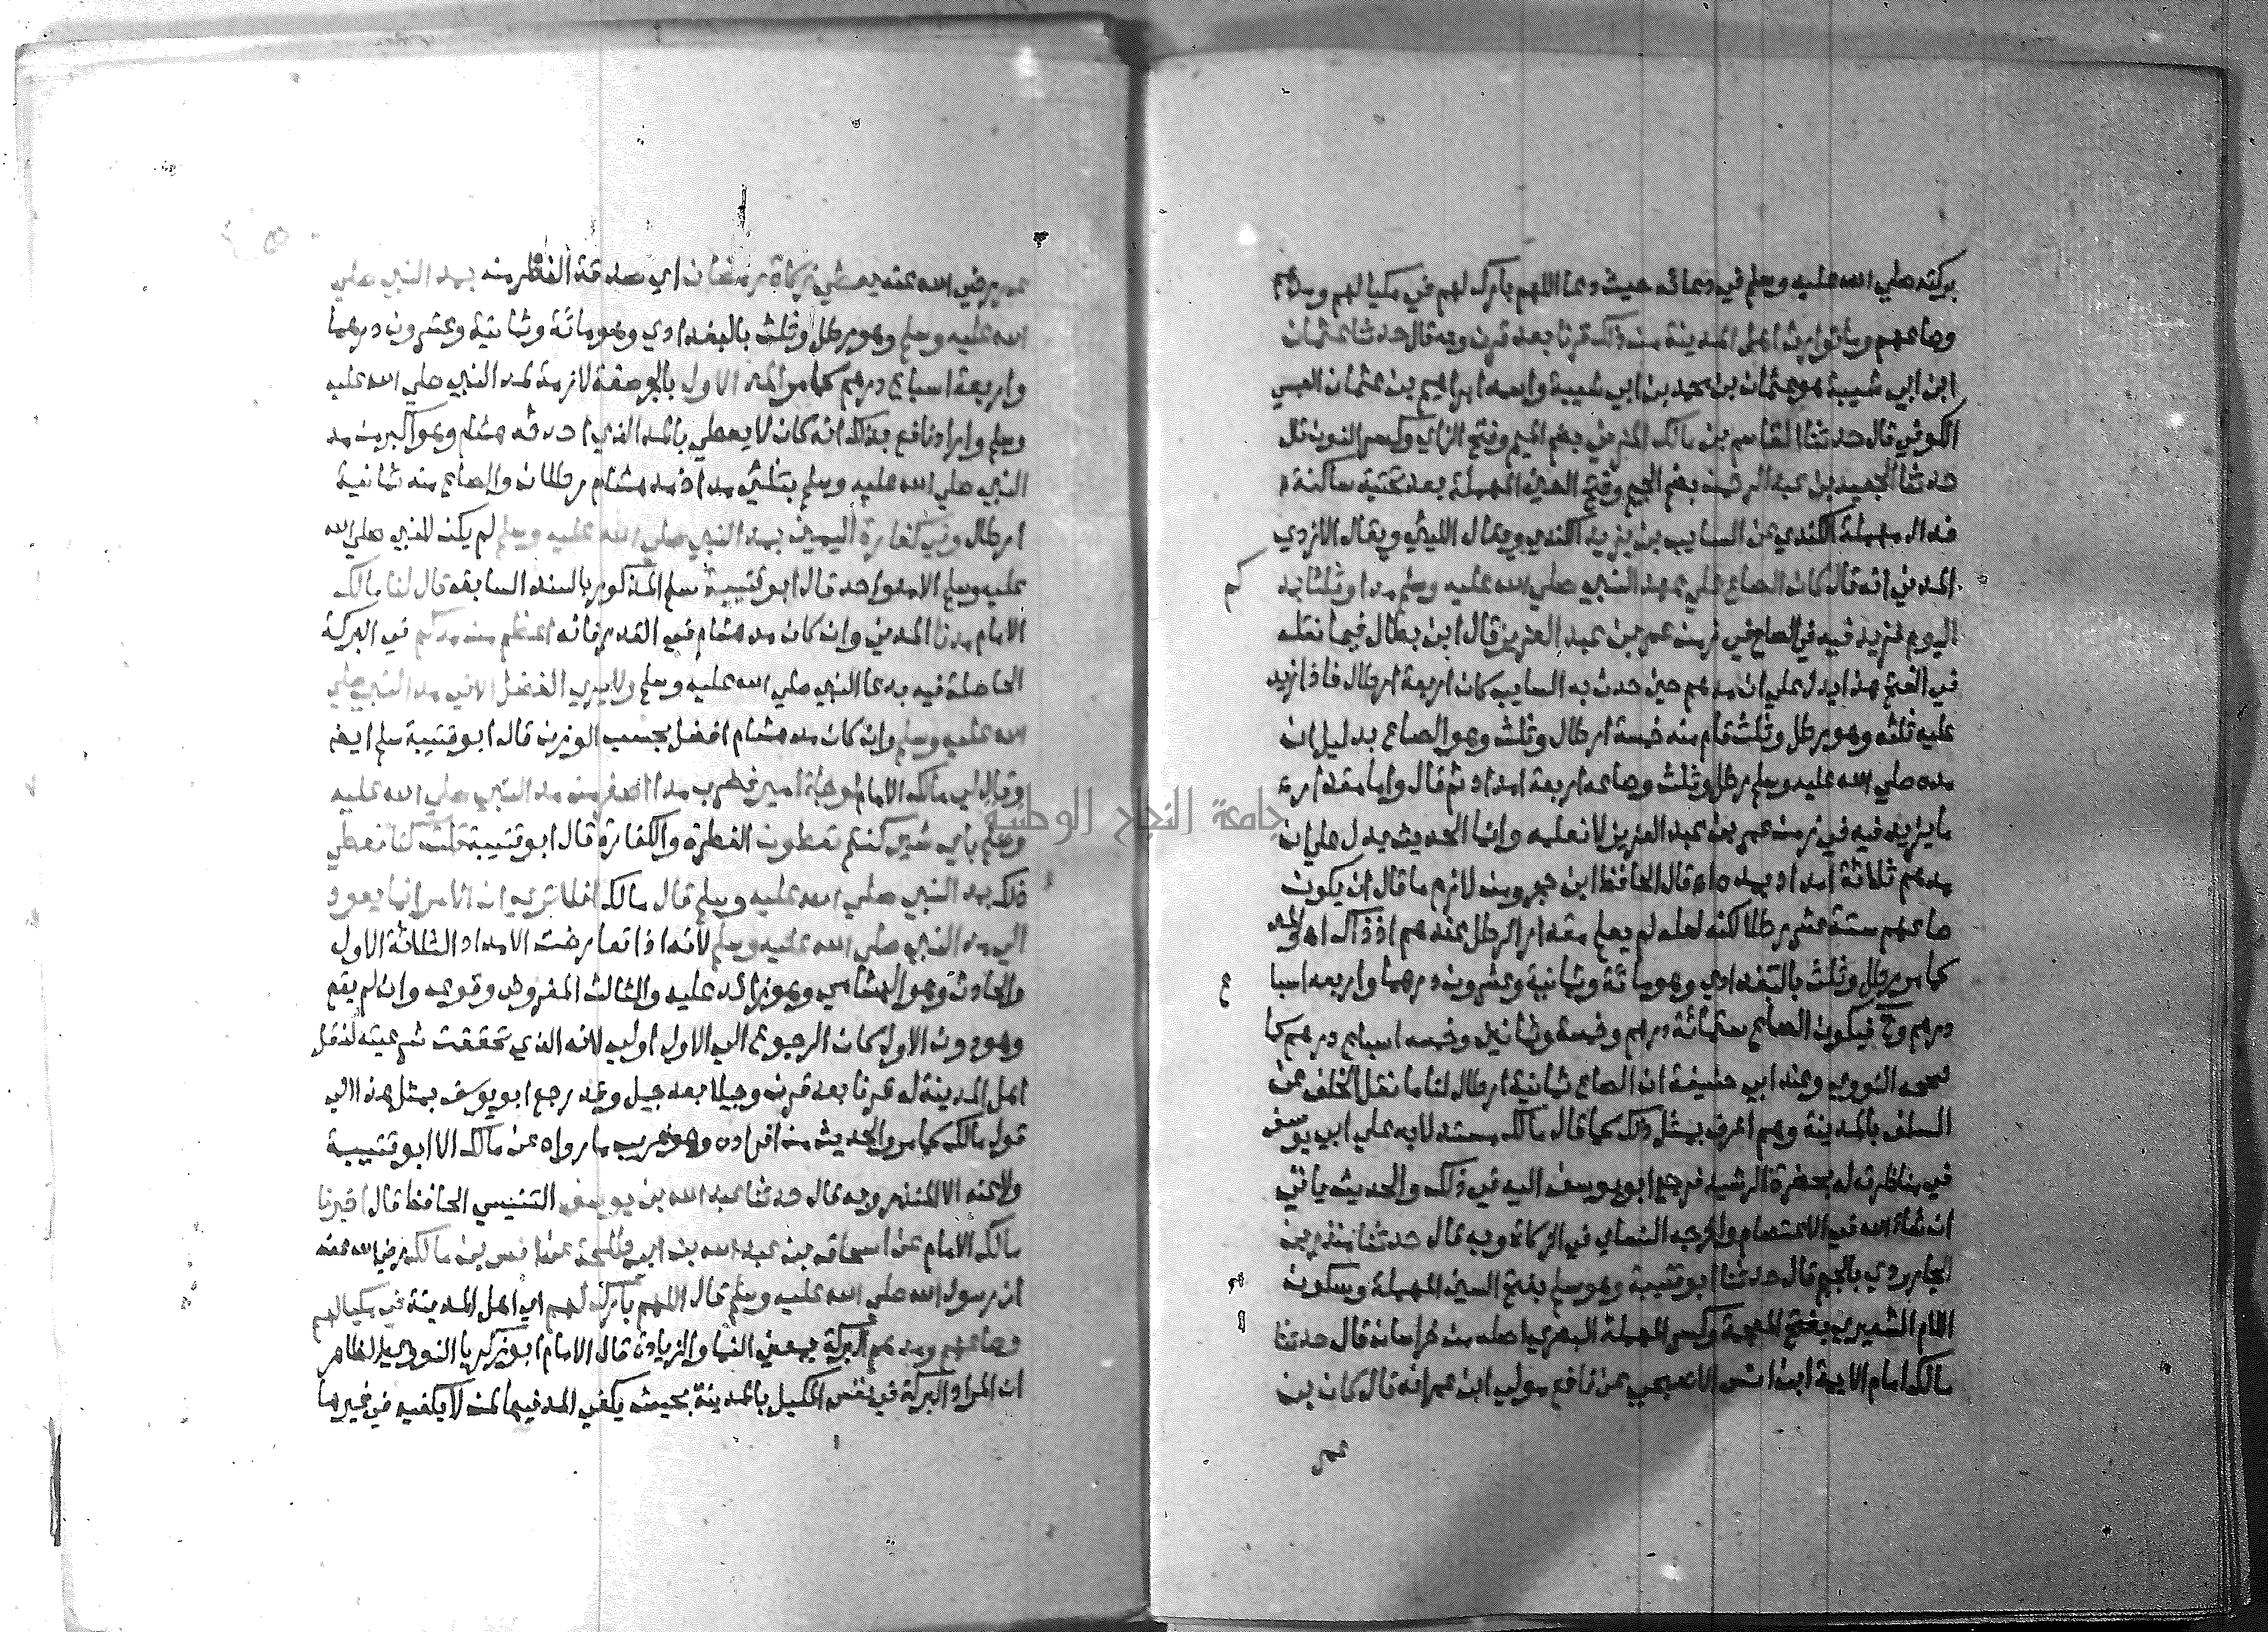 بركته صلي الله عليه وسلم في دعائه حيث دعا اللهم بارك لهم في مكيالهم ومدهم
وصاعهم وما توارث اهل المدينة من ذلك قرنا بعد قرن وبه قال حدثنا عثمان
ابن ابي شيبة هو عثمان بن محمد بن ابي شيبة واسمه ابراهيم بن عثمان العبسي
الكوفي قال حدثنا القاسم بن مالك المزني بضم الميم وفتح الزاي وكسر النون قال
حدثنا الجعيد بن عبد الرحمن بضم الجيم وفتح العين المهملة بعد تحتية ساكنة
فدال مهملة الكندي عن السايب بن يزيد الكندي ويقال الليثي ويقال الازدي
المدني انه قال كان الصاع علي عهد النبي صلي الله عليه وسلم مدا وثلثا بمد
كم
اليوم فزيد فيه في الصاع في زمن عمر بن عبد العزيز قال ابن بطال فيما نقله
في الفتح هذا يدل علي ان مدهم حين حدث به السايب كان اربعة ارطال فاذا زيد
عليه ثلثه وهو رطل وثلث قام منه خمسة ارطال وثلث وهو الصاع بدليل ان
مده صلي الله عليه وسلم رطل وثلث وصاعه اربعة امداد ثم قال واما مقدار
ما يزيد فيه في زمن عمر بن عبد العزيز لا نعلمه وانما الحديث يدل علي ان
مدهم ثلاثة امداد بمده اه قال الحافظ ابن حجر ومن لازم ما قال ان يكون
صاعهم ستة عشر رطلا لكنه لعله لم يعلم مقدار الرطل عندهم اذ ذاك اه والمد
كما مر رطل وثلث بالبغدادي وهو مائة وثمانية وعشرون درهما واربعة اسبا
ع
درهم وح فيكون الصاع ستمائة درهم وخمسة وثمانين وخمسه اسباع درهم كما
صححه النووي وعند ابي حنيفة ان الصاع ثمانية ارطال لنا ما نقل الخلف عن
السلف بالمدينة وهم اعرف بمثل ذلك كما قال مالك مستدلا به علي ابي يوسف
في مناظرته له بحضرة الرشيد فرجع ابو يوسف اليه في ذلك والحديث ياتي
ان شاء الله في الاعتصام واخرجه النسائي في الزكاة وبه قال حدثنا منذر بن
الجارودي بالجيم قال حدثنا ابو قتيبة وهو سلم بفتح السين المهملة وسكون
اللام الشعيري بفتح المعجمة وكسر المهملة البصري اصله من خراسان قال حدثنا
مالك امام الايمة ابن انس الاصبحي عن نافع مولي ابن عمر انه قال كان بن
عمر
عمر رضي الله عنه يعطي زكاة رمضان اي صدقة الفطر منه بمد النبي صلي
الله عليه وسلم وهو رطل وثلث بالبغدادي وهو مائة وثمانية وعشرون درهما
واربعة اسباع درهم كما مر المد الاول بالجر صفة لازمة لمد النبي صلي الله عليه
وسلم واراد نافع بذلك انه كان لا يعطي بالمد الذي احدثه هشام وهو اكبر من مد
النبي صلي الله عليه وسلم بثلثي مد اذ مد هشام رطلان والصاع منه ثمانية
ارطال وفي كفارة اليمين بمد النبي صلي الله عليه وسلم لم يكن للنبي صلي الله
عليه وسلم الا مد واحد قال ابو قتيبة سلم المذكور بالسند السابق قال لنا مالك
الامام مدنا المدني وان كان مد هشام في القدر فانه اعظم من مدكم في البركة
الحاصلة فيه بدعا النبي صلي الله عليه وسلم ولا يري الفضل الا في مد النبي صلي
الله عليه وسلم وان كان مد هشام افضل بحسب الوزن قال ابو قتيبة سلم ايضا
وقال لي مالك الامام لو جاءكم امير فضرب مدا اصغر من مد النبي صلي الله عليه
وسلم باي شيء كنتم تعطون الفطرة والكفارة قال ابو قتيبة قلت كنا نعطي
ذلك بمد النبي صلي الله عليه وسلم قال مالك افلا تري ان الامر انما يعود
الي مد النبي صلي الله عليه وسلم لانه اذا تعارضت الامداد الثلاثة الاول
والحادث وهو الهشامي وهو زائد عليه والثالث المفروض وقوعه وان لم يقع
وهو دون الاول كان الرجوع الي الاول اولي لانه الذي تحققت شرعيته لنقل
اهل المدينة له قرنا بعد قرن وجيلا بعد جيل وقد رجع ابو يوسف بمثل هذا الي
قول مالك كما مر والحديث من افراده وهو غريب ما رواه عن مالك الا ابو قتيبة
ولا عنه الا المنذر وبه قال حدثنا عبد الله بن يوسف التنيسي الحافظ قال اخبرنا
مالك الامام عن اسحاق بن عبد الله بن ابي طلحة عن انس بن مالك رضي الله عنه
ان رسول الله صلي الله عليه وسلم قال اللهم بارك لهم اي اهل المدينة في مكيالهم
وصاعهم ومدهم البركة بمعني النما والزيادة قال الامام ابو زكريا النووي الظاهر
ان المراد البركة في نفس المكيل بالمدينة بحيث يكفي المد فيها لمن لا يكفيه في غيرها
جامعة النجاح الوطنية